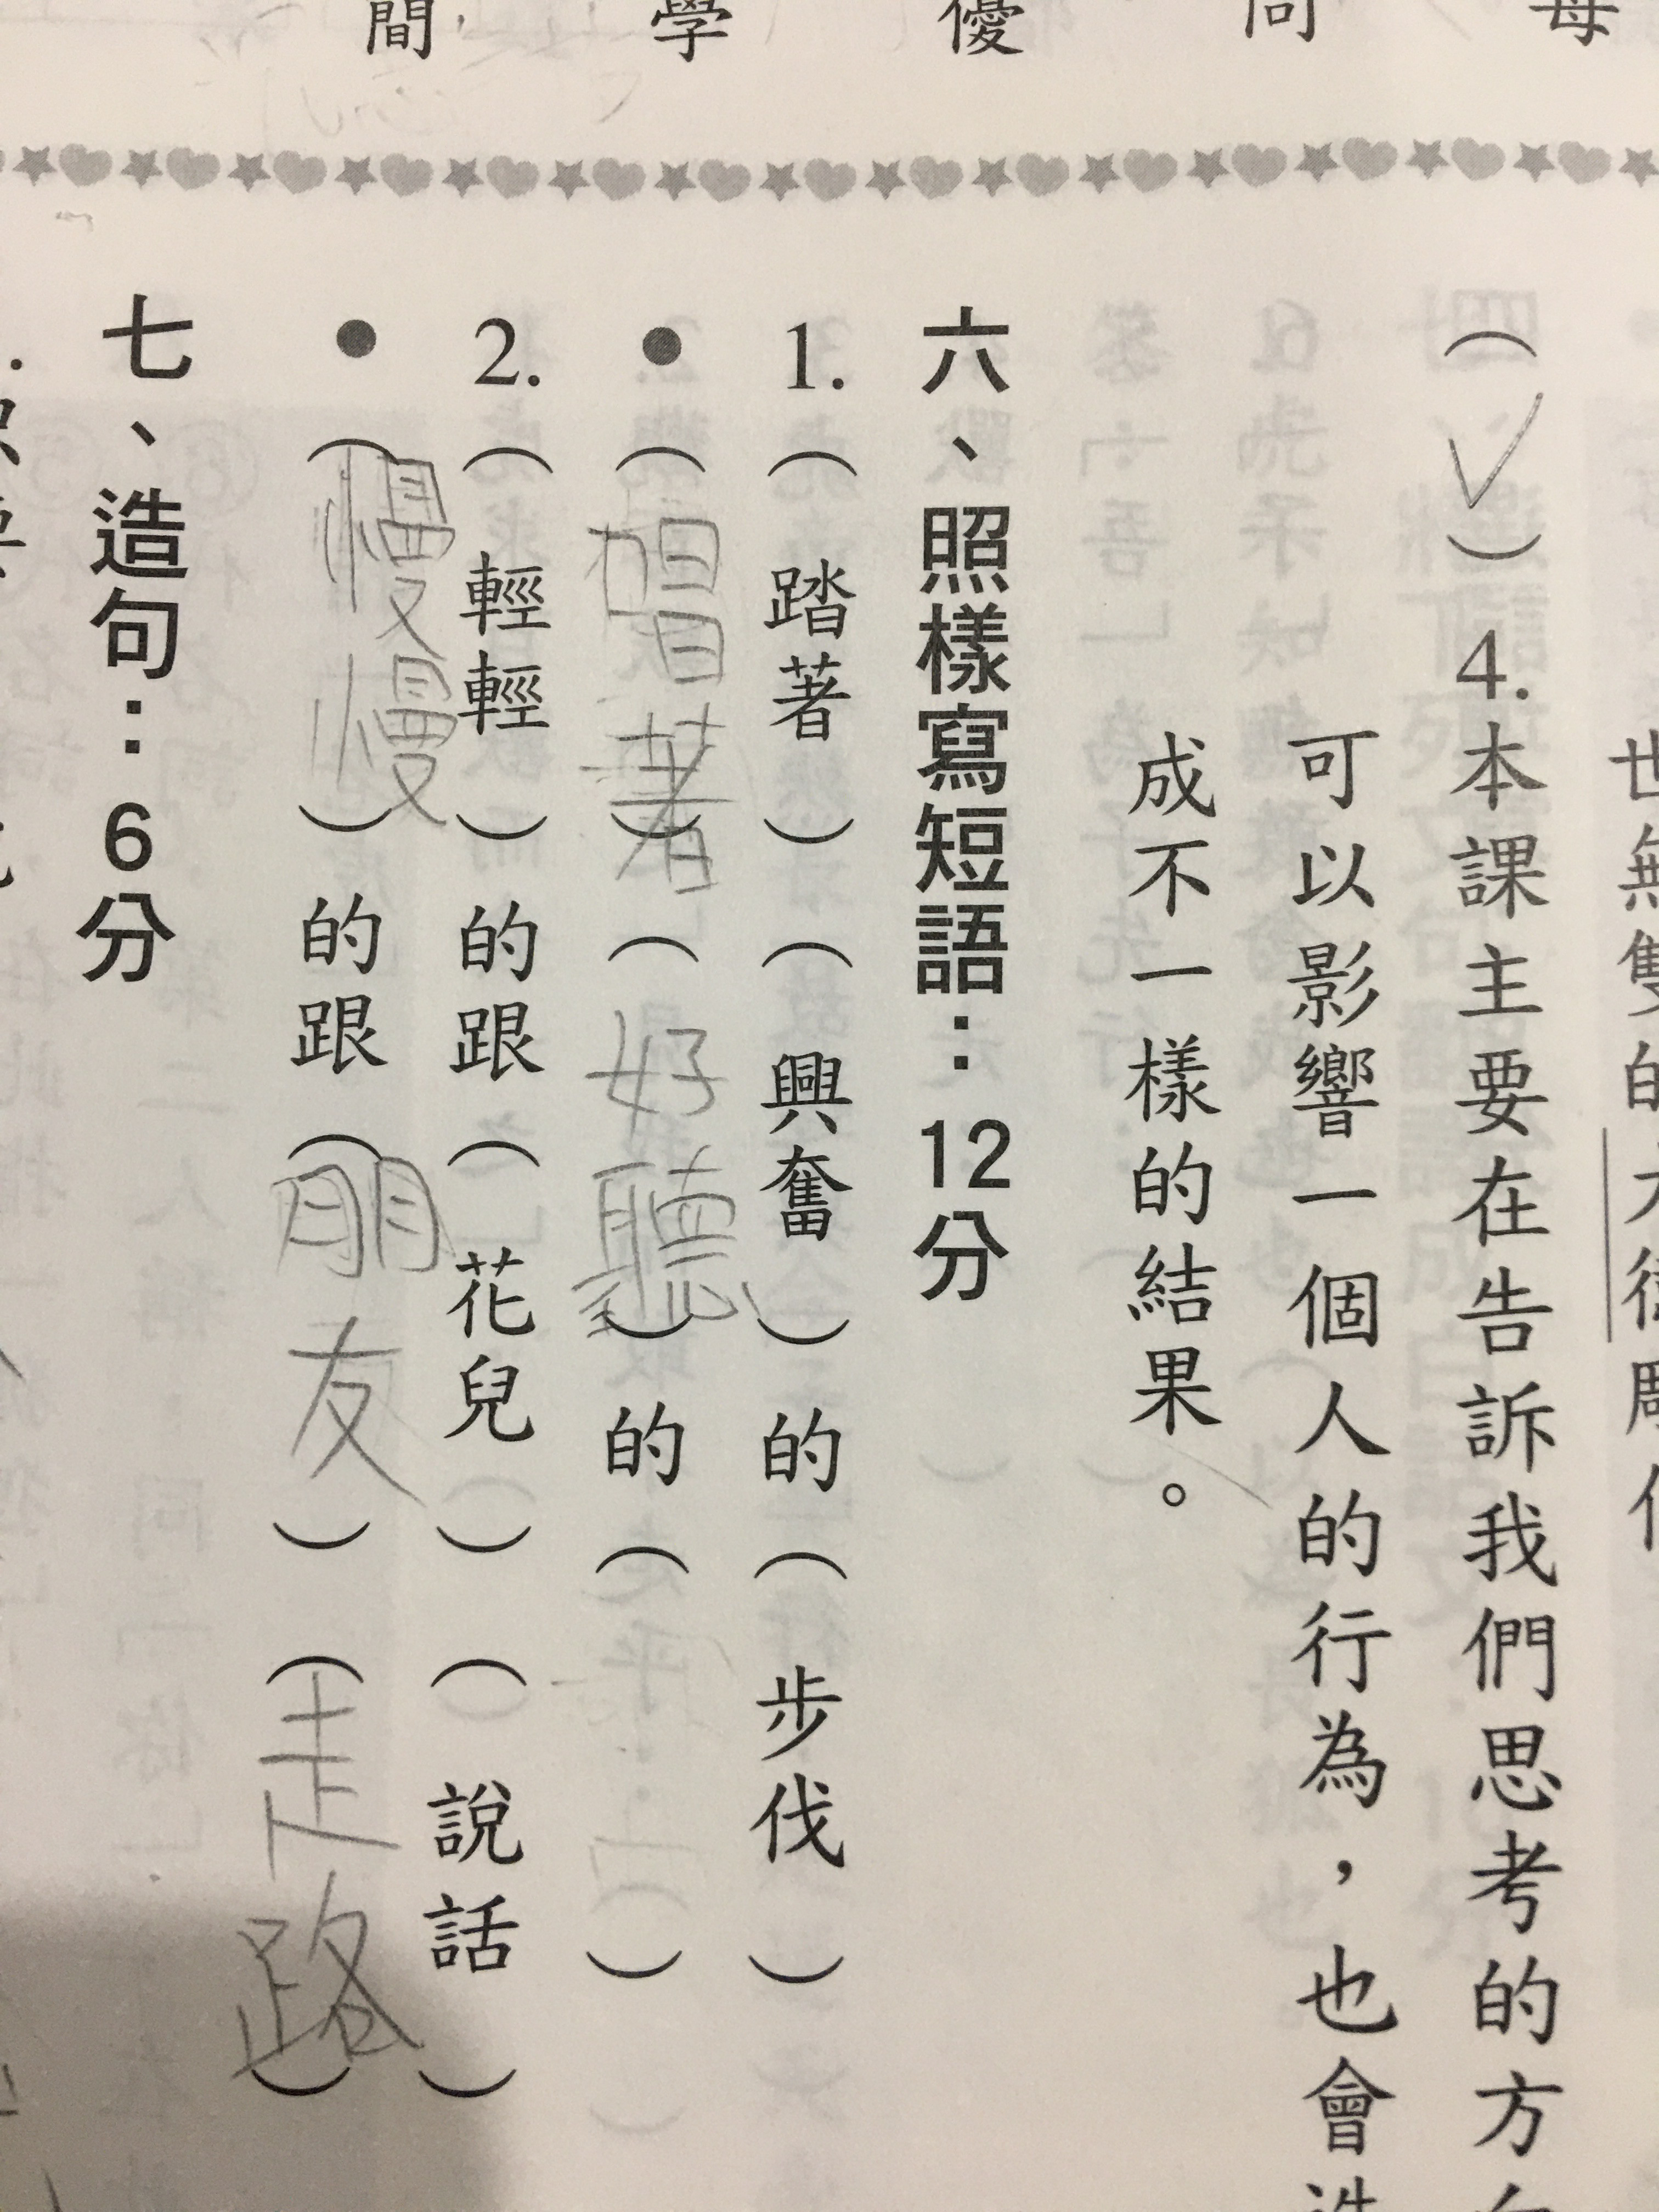 每
問
優
學
間
世無雙的大衛雕
（✓）4.本課主要在告訴我們思考的方向
可以影響一個人的行為，也會造
成不一樣的結果。
六、照樣寫短語：12分
1.（踏著）（興奮）的（步伐）
●（唱著）（好聽）的（）
2.（輕輕）的跟（花兒）（說話）
●（慢慢）的跟（朋友）（走路）
七、造句：6分